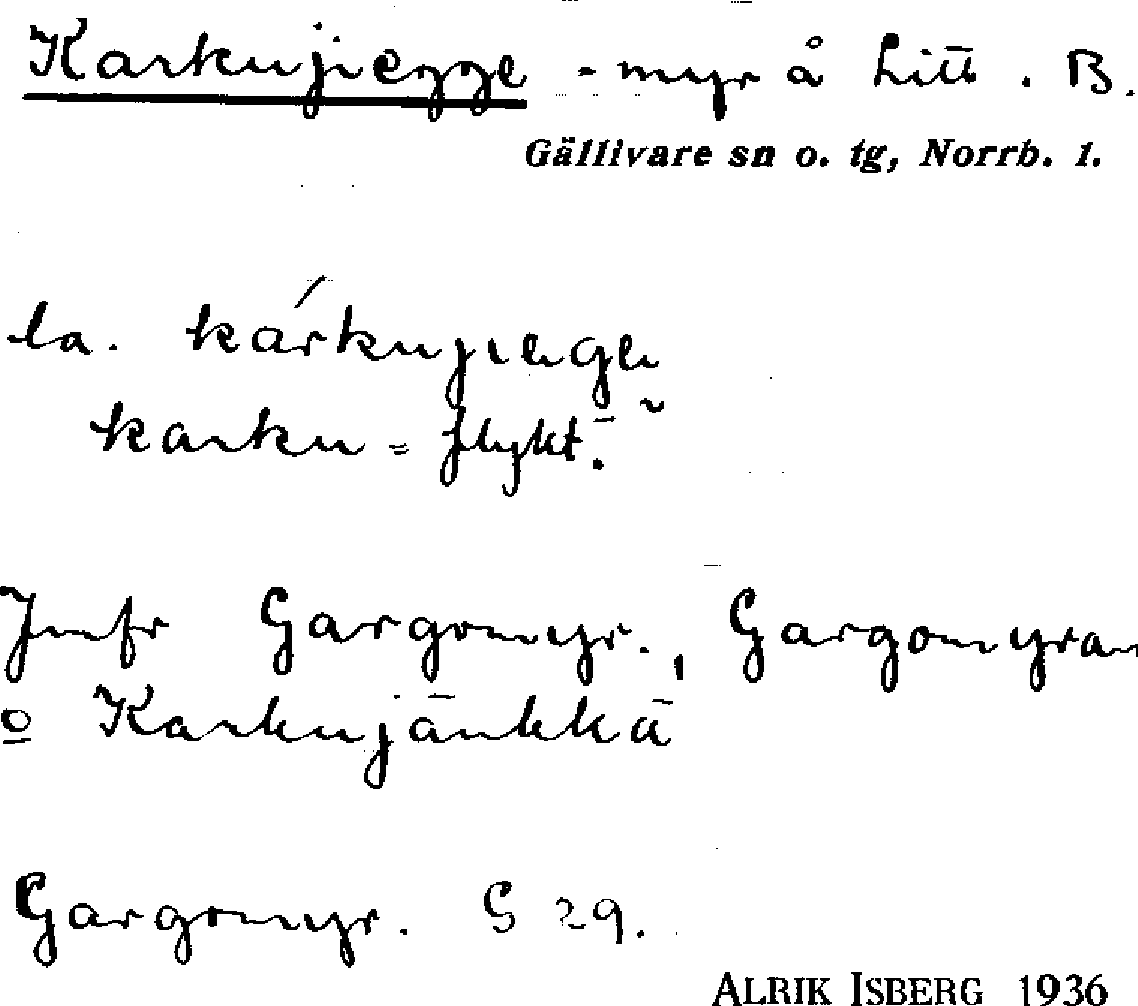 Karkujiegge - myr å Litt. B.
Gällivare sn o. tg, Norrb. 1.
la. kárkujiege
karku = flykt.
Jmfr Gargomyr., Gargomyran
o Karkujänkkä
Gargomyr. G 29.
ALRIK ISBERG 1936